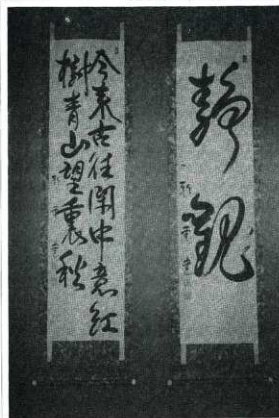 靜觀
今来古往閑中意紅
樹青山望裏秋